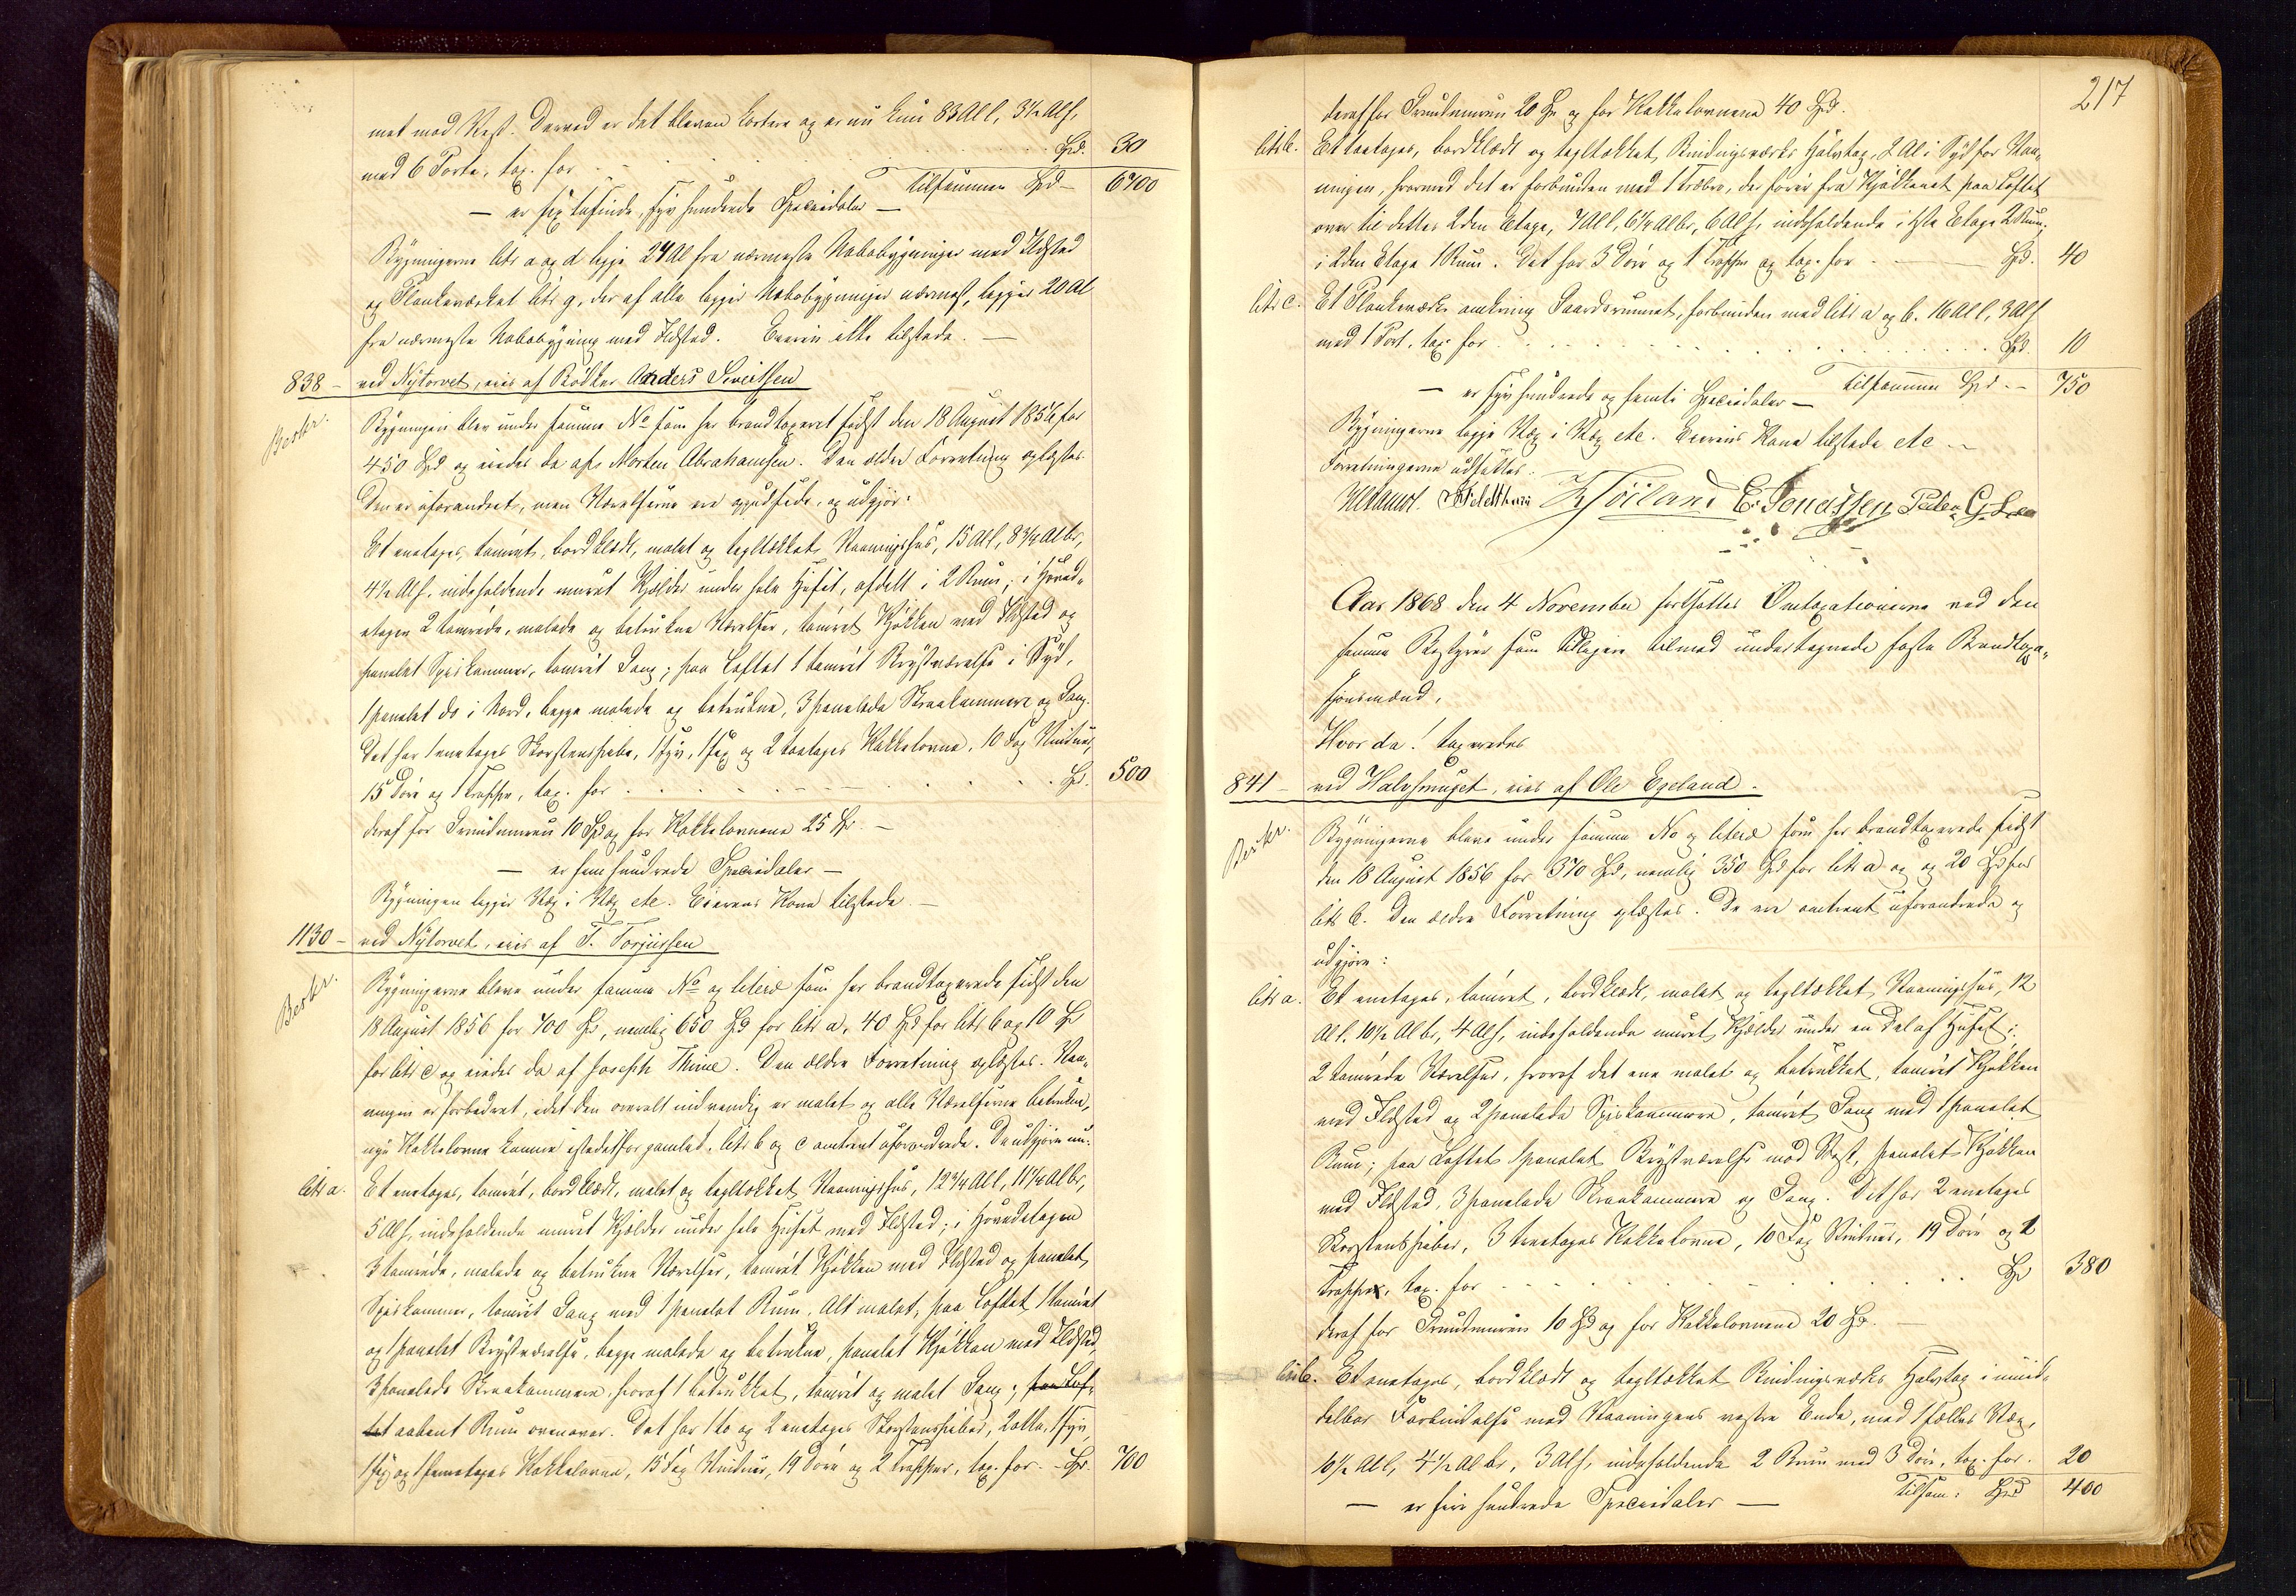 met mod Vest. Derved er det bleven kortere og er nu kun 83 Al l, 3½ Al h,
med 6 Porte, tax. for . . . Spd. 30
Tilsammen Spd – 6700
– er sex tusinde, syv hundrede Speciedaler –
Bygningerne litr a og d ligge 24 Al fra nærmeste Nabobygninger med Ildsted
og Plankeværket litr g, der af alle ligger Nabobygninger nærmest, ligger 20 Al
fra nærmeste Nabobygning med Ildsted. Eieren ikke tilstede. –
838 – ved Nytorvet, eies af Bødker Anders Siveitsen
Beskr.
Bygningen blev under samme No som her brandtaxeret sidst den 18 August 1856 for
450 Spd og eiedes da af Morten Abrahamsen. Den ældre Forretning oplæstes.
Den er uforandret, men Værelserne ere oppudsede, og udgjør:
Et enetages, tømret, bordklædt, malet og tegltækket Vaaningshus, 15 Al l, 8¾ Al br,
4½ Al h, indeholdende muret Kjelder under hele Huset, afdelt i 2 Rum; i Hoved-
etagen 2 tømrede, malede og betrukne Værelser, tømret Kjøkken med Ildsted og
panelet Spiskammer, tømret Gang; paa Loftet 1 tømret Kvistværelse i Syd,
1 panelet do i Nord, begge malede og betrukne, 3 panelede Skraakammere og Gang.
Det har 1 enetages Skorstenspibe, 1 fyr, 1 sex og 2 toetages Kakkelovne, 10 Fag Vinduer,
15 Døre og 1 Trappe, tax. for . . . Sp. 500
deraf for Grundmuren 10 Spd og for Kakkelovnene 25 Sp. –
– er fem hundrede Speciedaler –
Bygningen ligger Væg i Væg etc. Eierens Kone tilstede. –
1130 – ved Nytorvet, eies af T. Torjussen
Beskr.
Bygningerne bleve under samme No og literæ som her brandtaxerede sidst den
18 August 1856 for 700 Sp, nemlig 650 Spd for litr a, 40 Spd for litr b og 10 Sp
for litr c og eiedes da af Joseph Thime. Den ældre Forretning oplæstes. Vaa-
ningen er forbedret, idet den overalt indvendig er malet og alle Værelserne betrukne,
nye Kakkelovne komne istedetfor gamle. litr b og c omtrent uforandrede. De udgjøre nu:
litr a. Et enetages, tømret, bordklædt, malet og tegltækket Vaaningshus, 12¾ Al l, 11¼ Al br,
5 Al h, indeholdende muret Kjelder under hele Huset med Ildsted; i Hovedetagen
3 tømrede, malede og betrukne Værelser, tømret Kjøkken med Ildsted og panelet
Spiskammer, tømret Gang med 1 panelet Rum. Alt malet; paa Loftet 1 tømret
og 1 panelet Kvistværelse, begge malede og betrukne, panelet Kjøkken med Ildsted,
3 panelede Skraakammere, hvoraf 1 betrukket, tømret og malet Gang; paa Lof-
tet aabent Rum ovenover. Det har 1 to og 2 enetages Skorstenspiber, 2 otte, 1 fyr,
1 sex og 1 femetages Kakkelovne, 15 Fag Vinduer, 19 Døre og 2 Trapper, tax. for – Sp. 700
217
deraf for Grundmuren 20 Sp og for Kakkelovnene 40 Spd.
litr b. Et toetages, bordklædt og tegltækket Bindingsværks Halvtag, 2 Al i Syd for Vaa-
ningen, hvormed det er forbunden med 1 Træbro, der fører fra Kjøkkenet paa Loftet
over til dettes 2den Etage, 7 Al l, 6¼ Al br, 6 Al h, indeholdende i 1ste Etage 2 Rum,
i 2den Etage 1 Rum. Det har 3 Døre og 1 Trappe og tax. for – Spd. 40
litr c. Et Plankeværk omkring Gaardsrummet, forbunden med litr a og b. 16 Al l, 3 Al h
med 1 Port, tax. for . . . Spd. 10
Tilsammen Spd. – 750
– er syv hundrede og femti Speciedaler –
Bygningerne ligge Væg i Væg etc. Eierens Kone tilstede etc –
Forretningerne udsattes.
E. Jonassen Peder G. Lea
Aar 1868 den 4 November fortsattes Omtaxationerne ved den
samme Bestyrer som tidligere tilmed undertegnede faste Brandtaxa-
tionsmænd,
Hvor da! taxeredes
841 – ved Halvsmuget, eies af Ole Egeland.
Beskr.
Bygningerne bleve under samme No og literæ som her brandtaxerede sidst
den 18 August 1856 for 370 Spd, nemlig 350 Spd for litr a og og 20 Spd for
litr b. Den ældre Forretning oplæstes. De ere omtrent uforandrede og
udgjøre:
litr a. Et enetages, tømret, bordklædt, malet og tegltækket Vaaningshus, 12
Al l, 10½ Al br, 4 Al h, indeholdende muret Kjelder under en Del af Huset;
2 tømrede Værelser, hvoraf det ene malet og betrukket, tømret Kjøkken
med Ildsted og 2 panelede Spiskammere, tømret Gang med 1 panelet
Rum; paa Loftet 1 panelet Kvistværelse mod Vest, panelet Kjøkken
med Ildsted, 3 panelede Skraakammere og Gang. Det har 2 enetages
Skorstenspiber, 3 treetages Kakkelovne, 10 Fag Vinduer, 19 Døre og 1
Trappe, tax. for . . . Sp 380
deraf for Grundmuren 10 Spd og for Kakkelovnene 20 Sp. –
litr b. Et enetages, bordklædt og tegltækket Bindingsværks Halvtag i umid-
delbar Forbindelse med Vaaningens vestre Ende, med 1 fælles Væg,
10½ Al l, 4½ Al br, 3 Al h, indeholdende 2 Rum med 3 Døre, tax. for. 20
Tilsam: Spd 400
– er fire hundrede Speciedaler –